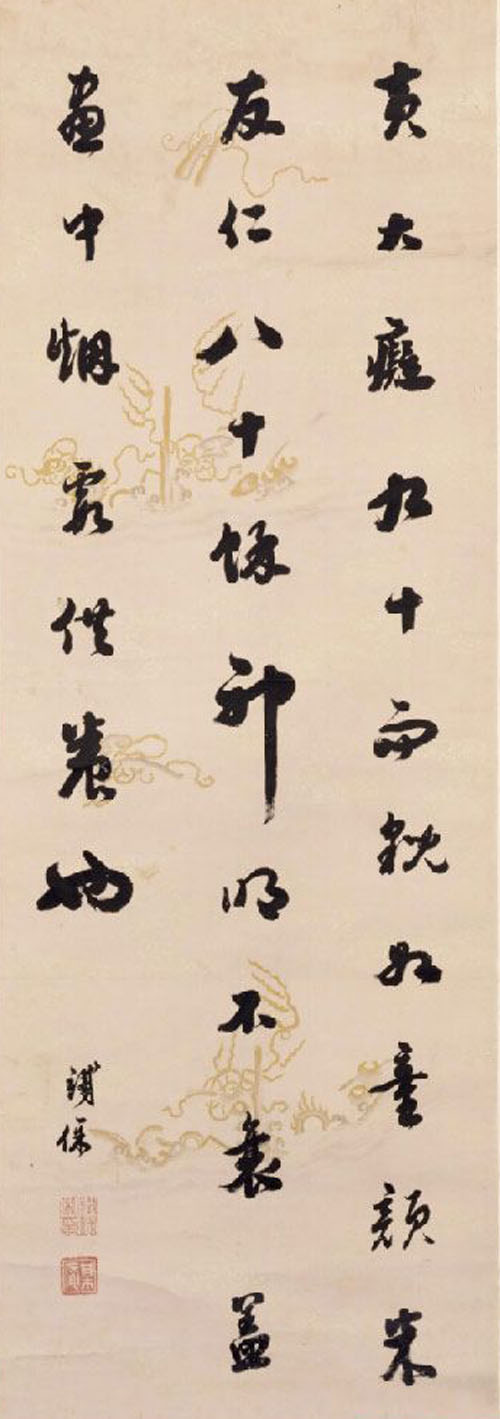 黄大癡九十而貌如童顔米
友仁八十餘神明不衰蓋
畫中烟霞供養也
鐵保